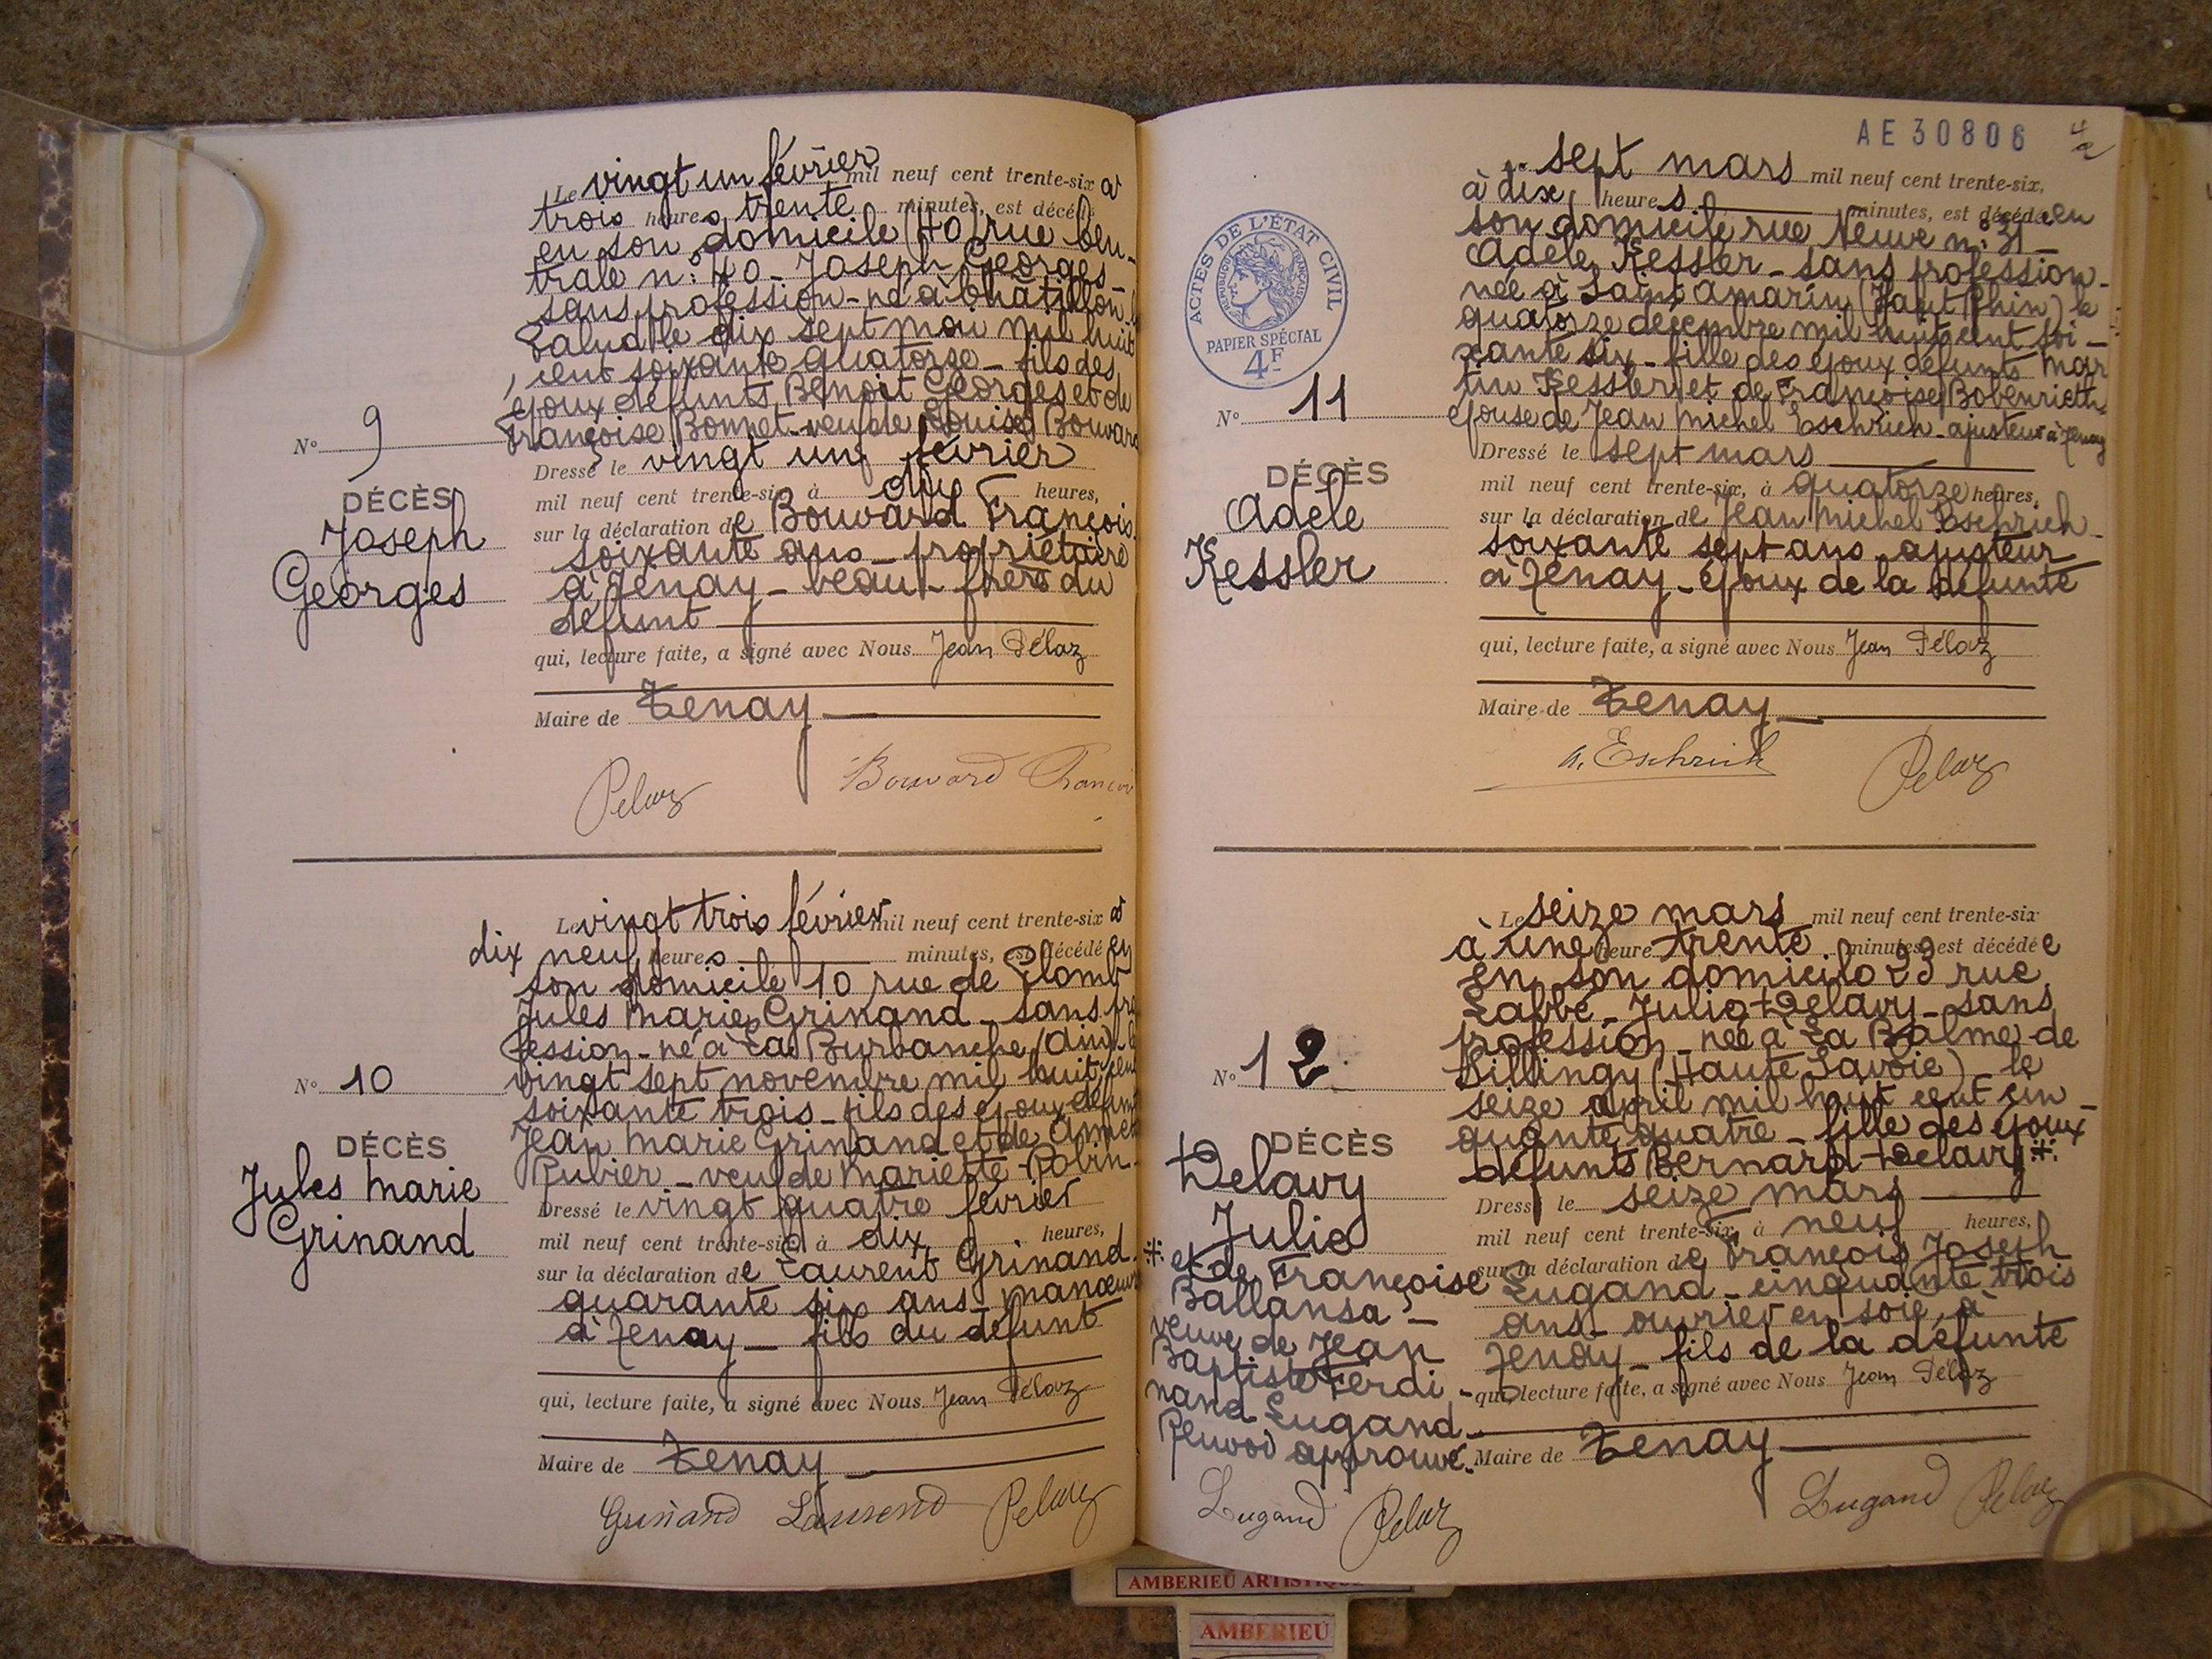 Le vingt un février mil neuf cent trente-six à
trois heures trente minutes, est décédé
en son domicile (40) rue Cen-
trale n: 40 - Joseph Georges -
sans profession - né à Châtillon-la
Palud le dix sept mai mil huit
cent soixante quatorze - fils des
époux défunts Benoit Georges et de
Françoise Bonnet - veuf de Louise Bouvard
N° 9
DÉCÈS
Joseph
Georges
Dressé le vingt un février
mil neuf cent trente-six, à dix heures,
sur la déclaration de Bouvard François
soixante ans - propriétaire
à Tenay - beau-frère du
défunt
qui, lecture faite, a signé avec Nous Jean Pélaz
Maire de Tenay
Pelaz Bouvard François
Le vingt trois février mil neuf cent trente-six à
dix neuf heures minutes, est décédé en
son domicile 10 rue de Plomb
Jules Marie Grinand - sans pro
fession - né à La Burbanche (Ain) le
vingt sept novembre mil huit cent
soixante trois - fils des époux défunts
Jean Marie Grinand et de
Rubier - veuf de Mariette Robin
N° 10
DÉCÈS
Jules Marie
Grinand
Dressé le vingt quatre février
mil neuf cent trente-six, à dix heures,
sur la déclaration de Laurent Grinand
quarante six ans - manœuvre
à Tenay - fils du défunt
qui, lecture faite, a signé avec Nous Jean Pélaz
Maire de Tenay
Grinand Laurend Pelaz
AE 30806
Le sept mars mil neuf cent trente-six,
à dix heures minutes, est décédée en
son domicile rue Neuve n: 31 -
Adèle Kessler - sans profession -
née à Saint Amarin (Haut Rhin) le
quatorze décembre mil huit cent soi-
xante six - fille des époux défunts Mar
tin Kessler et de Françoise Bobenrieth
épouse de Jean Michel Eschrich - ajusteur à Tenay
ACTES DE L'ÉTAT CIVIL
RÉPUBLIQUE FRANÇAISE
PAPIER SPÉCIAL
4F
N° 11
DÉCÈS
Adèle
Kessler
Dressé le sept mars
mil neuf cent trente-six, à quatorze heures,
sur la déclaration de Jean Michel Eschrich -
soixante sept ans - ajusteur
à Tenay - époux de la défunte
qui, lecture faite, a signé avec Nous Jean Pélaz
Maire de Tenay
Eschrich Pelaz
Le seize mars mil neuf cent trente-six
à une heure trente minutes, est décédée
en son domicile 23 rue
Labbé - Julie Delavy - sans
profession - née à La Balme de
Sillingy (Haute Savoie) le
seize april mil huit cent cin-
quante quatre - fille des époux
défunts Bernard Delavy ⁜
N° 12
DÉCÈS
Delavy
Julie
⁜ et de Françoise
Ballansa -
veuve de Jean
Baptiste Ferdi-
nand Lugand -
Renvoi approuvé.
Lugand Pelaz
Dressé le seize mars
mil neuf cent trente-six, à neuf heures,
sur la déclaration de François Joseph
Lugand - cinquante trois
ans - ouvrier en soie à
Tenay - fils de la défunte
qui, lecture faite, a signé avec Nous Jean Pélaz
Maire de Tenay
Lugand Pelaz
AMBERIEU ARTISTIQUE
AMBERIEU